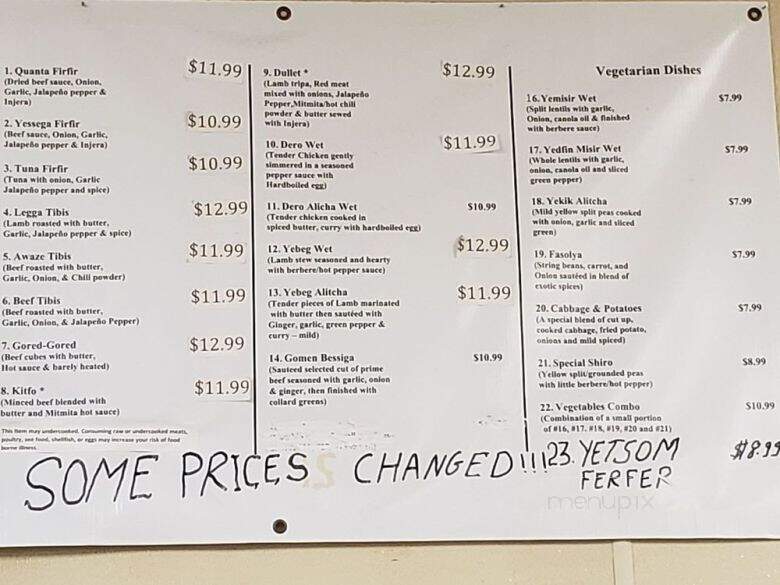 1. Quanta Firfir $11.99
(Dried beef sauce, Onion,
Garlic, Jalapeño pepper &
Injera)
2. Yessega Firfir $10.99
(Beef sauce, Onion, Garlic,
Jalapeño pepper & Injera)
3. Tuna Firfir $10.99
(Tuna with onion, Garlic
Jalapeño pepper and spice)
4. Legga Tibis $12.99
(Lamb roasted with butter,
Garlic, Jalapeño pepper & spice)
5. Awaze Tibis $11.99
(Beef roasted with butter,
Garlic, Onion, & Chili powder)
6. Beef Tibis $11.99
(Beef roasted with butter,
Garlic, Onion, & Jalapeño Pepper)
7. Gored-Gored $12.99
(Beef cubes with butter,
Hot sauce & barely heated)
8. Kitfo * $11.99
(Minced beef blended with
butter and Mitmita hot sauce)
This item may undercooked. Consuming raw or undercooked meats,
poultry, see food, shellfish, or eggs may increase your risk of food
borne illness.
9. Dullet * $12.99
(Lamb tripa, Red meat
mixed with onions, Jalapeño
Pepper,Mitmita/hot chili
powder & butter sewed
with Injera)
10. Dero Wet $11.99
(Tender Chicken gently
simmered in a seasoned
pepper sauce with
Hardboiled egg)
11. Dero Alicha Wet $10.99
(Tender chicken cooked in
spiced butter, curry with hardboiled egg)
12. Yebeg Wet $12.99
(Lamb stew seasoned and hearty
with berbere/hot pepper sauce)
13. Yebeg Alitcha $11.99
(Tender pieces of Lamb marinated
with butter then sautéed with
Ginger, garlic, green pepper &
curry – mild)
14. Gomen Bessiga $10.99
(Sauteed selected cut of prime
beef seasoned with garlic, onion
& ginger, then finished with
collard greens)
Vegetarian Dishes
16. Yemisir Wet $7.99
(Split lentils with garlic,
Onion, canola oil & finished
with berbere sauce)
17. Yedfin Misir Wet $7.99
(Whole lentils with garlic,
onion, canola oil and sliced
green pepper)
18. Yekik Alitcha $7.99
(Mild yellow split peas cooked
with onion, garlic and sliced
green)
19. Fasolya $7.99
(String beans, carrot, and
Onion sautéed in blend of
exotic spices)
20. Cabbage & Potatoes $7.99
(A special blend of cut up,
cooked cabbage, fried potato,
onions and mild spiced)
21. Special Shiro $8.99
(Yellow split/grounded peas
with little berbere/hot pepper)
22. Vegetables Combo $10.99
(Combination of a small portion
of #16, #17. #18, #19, #20 and #21)
23. YETSOM $18.99
FERFER
SOME PRICES CHANGED!!!
menupix